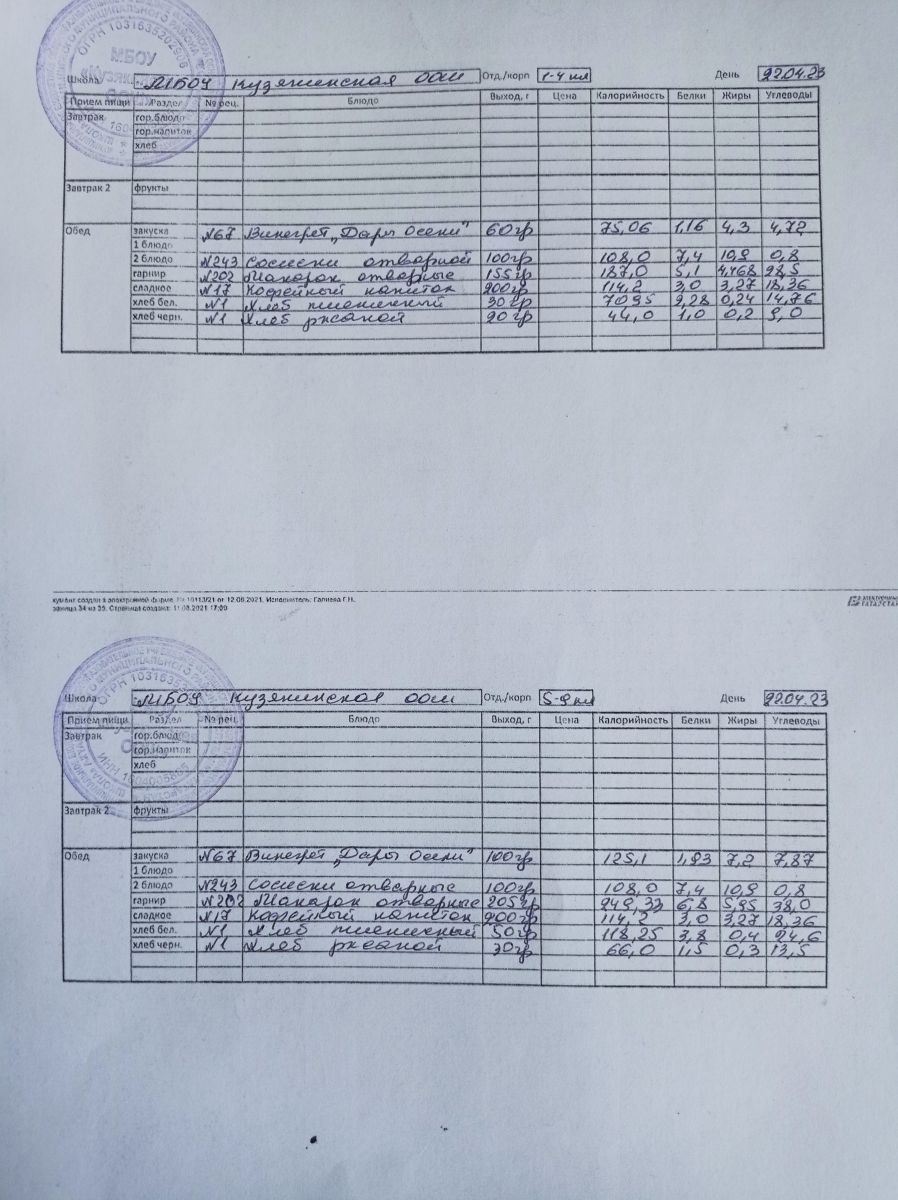 ОГРН 1031635202976
МБОУ
Школа МБОУ Кузякинская оош Отд./корп 1-4 кл День 22.04.23
Прием пищи Раздел № рец. Блюдо Выход, г Цена Калорийность Белки Жиры Углеводы
Завтрак гор.блюдо
гор.напиток
хлеб
Завтрак 2 фрукты
Обед закуска №67 Винегрет „Дары Осени" 60гр 75,06 1,16 4,3 4,72
1 блюдо
2 блюдо №243 Сосиски отварной 100гр 108,0 7,4 10,9 0,8
гарнир №202 Макарон отварные 155гр 187,0 5,1 4,468 28,5
сладкое №17 Кофейный напиток 200гр 114,2 3,0 3,27 18,36
хлеб бел. №1 Хлеб пшеничный 30гр 70,95 2,28 0,24 14,76
хлеб черн. №1 Хлеб ржаной 20гр 44,0 1,0 0,2 9,0
кумент создан в электронной форме. от 12.08.2021. Исполнитель: Галиева Г.Н.
раница 34 из 35. Страница создана: 11.08.2021 17:00
ЭЛЕКТРОННЫЙ
ТАТАРСТАН
Школа МБОУ Кузякинская оош Отд./корп 5-9 кл День 22.04.23
Прием пищи Раздел № рец. Блюдо Выход, г Цена Калорийность Белки Жиры Углеводы
Завтрак гор.блюдо
гор.напиток
хлеб
Завтрак 2 фрукты
Обед закуска №67 Винегрет „Дары Осени" 100гр 125,1 1,93 7,2 7,87
1 блюдо
2 блюдо №243 Сосиски отварные 100гр 108,0 7,4 10,9 0,8
гарнир №202 Макарон отварные 205гр 249,33 6,8 5,95 38,0
сладкое №17 Кофейный напиток 200гр 114,2 3,0 3,27 18,36
хлеб бел. №1 Хлеб пшеничный 50гр 118,25 3,8 0,4 24,6
хлеб черн. №1 Хлеб ржаной 30гр 66,0 1,5 0,3 13,5